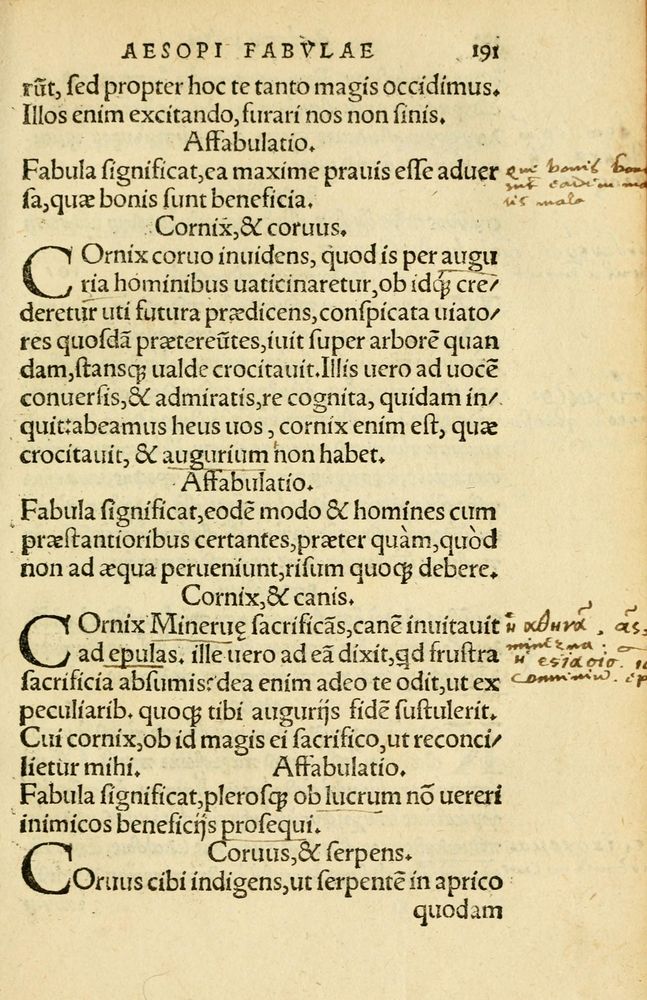 AESOPI FABVLAE 191
rūt, ſed propter hoc te tanto magis occidimus.
Illos enim excitando, furari nos non ſinis.
Affabulatio.
Fabula ſignificat, ea maxime prauis eſſe aduer
ſa, quæ bonis ſunt beneficia.
Cornix, & coruus.
COrnix coruo inuidens, quod is per augu
ria hominibus uaticinaretur, ob idq; cre/
deretur uti futura prædicens, conſpicata uiato/
res quoſdā prætereūtes, iuit ſuper arborē quan
dam, ſtansq; ualde crocitauit. Illis uero ad uocē
conuerſis, & admiratis, re cognita, quidam in/
quit: abeamus heus uos, cornix enim eſt, quæ
crocitauit, & augurium non habet.
Affabulatio.
Fabula ſignificat, eodē modo & homines cum
præſtantioribus certantes, præter quàm, quòd
non ad æqua perueniunt, riſum quoq; debere.
Cornix, & canis.
COrnix Mineruę ſacrificās, canē inuitauit
ad epulas. ille uero ad eā dixit, qd fruſtra
ſacrificia abſumis? dea enim adeo te odit, ut ex
peculiarib. quoq; tibi augurijs fidē ſuſtulerit.
Cui cornix, ob id magis ei ſacrifico, ut reconci/
lietur mihi. Affabulatio.
Fabula ſignificat, pleroſq; ob lucrum nō uereri
inimicos beneficijs proſequi.
Coruus, & ſerpens.
COruus cibi indigens, ut ſerpentē in aprico
quodam
bonis
mala